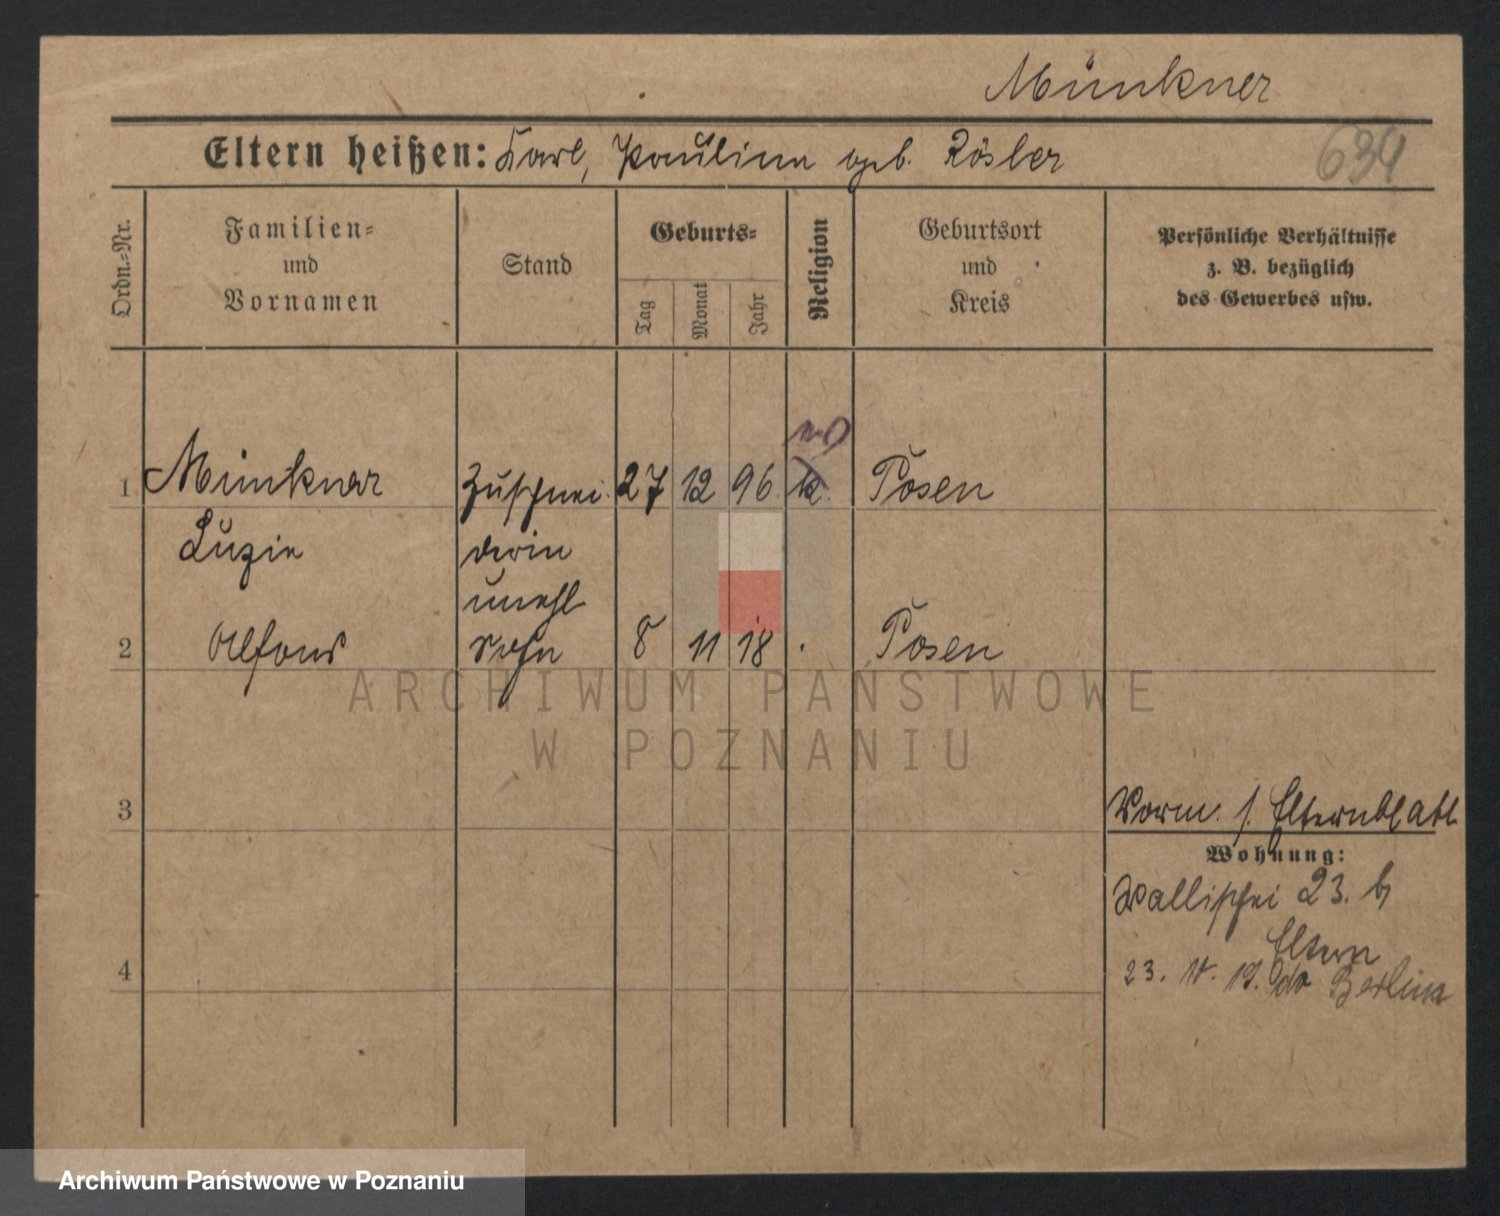 Münkner
Eltern heißen: Karl, Pauline geb. Rösler
634
Ordn.-Nr.
Familien-
und
Vornamen
Stand
Geburts-
Tag
Monat
Jahr
Religion
Geburtsort
und
Kreis
Persönliche Verhältnisse
z. B. bezüglich
des Gewerbes usw.
1 Münkner Zuschnei. 27 12 96 k. Posen
Luzie derin
unehl
2 Alfons Sohn 8 11 18 . Posen
ARCHIWUM PAŃSTWOWE
W POZNANIU
3
Vorm. s. Elternblatt
Wohnung:
Wallischei 23. b
Eltern
4
23. 11. 19. do Berlin
Archiwum Państwowe w Poznaniu